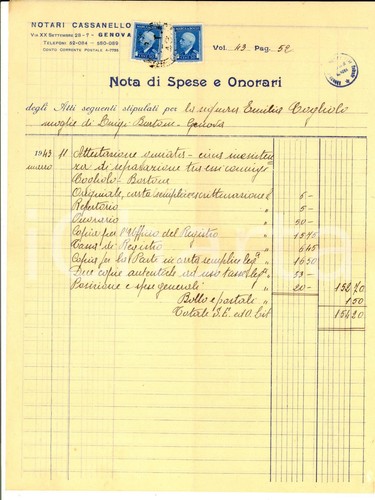 NOTARI CASSANELLO
VIA XX SETTEMBRE 28 - 7 - GENOVA
TELEFONI 52-054 - 580-069
CONTO CORRENTE POSTALE 4-7798
Vol. 43 Pag. 52
Nota di Spese e Onorari
degli Atti seguenti stipulati per la signora Emilia Cogliolo
moglie di Luigi Bertoni - Genova
1943 11 Attestazione
marzo di separazione coniugi
Cogliolo - Bertoni
Originale, carta semplice scritturazione £ 5-
Repertorio " 5-
Onorario " 50-
Copia per l'Ufficio del Registro " 15.75
Tassa di Registro " 6.45
Copia per la Parte in carta semplice " 16.50
Due copie autentiche ad uso " 33-
Posizione e spese generali " 20- 152.70
Bollo e postale " 1.50
Totale S.E. ed O. Lit. 154.20